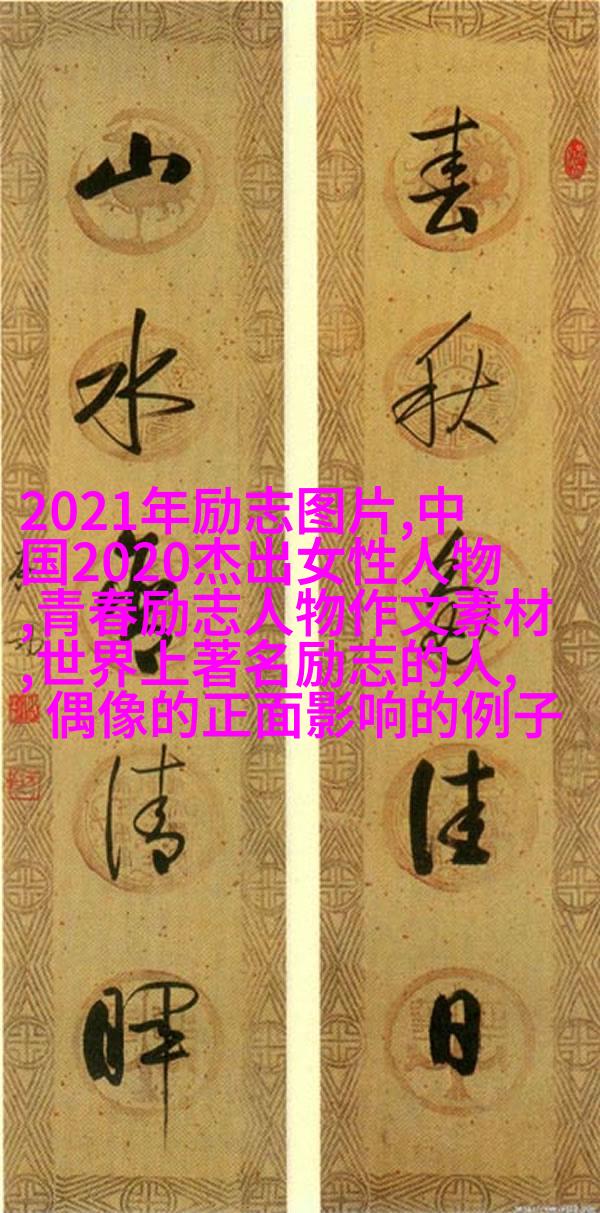 春秋佳日
山水清暉
2021年励志图片,中
国2020杰出女性人物
,青春励志人物作文素材
,世界上著名励志的人,
偶像的正面影响的例子